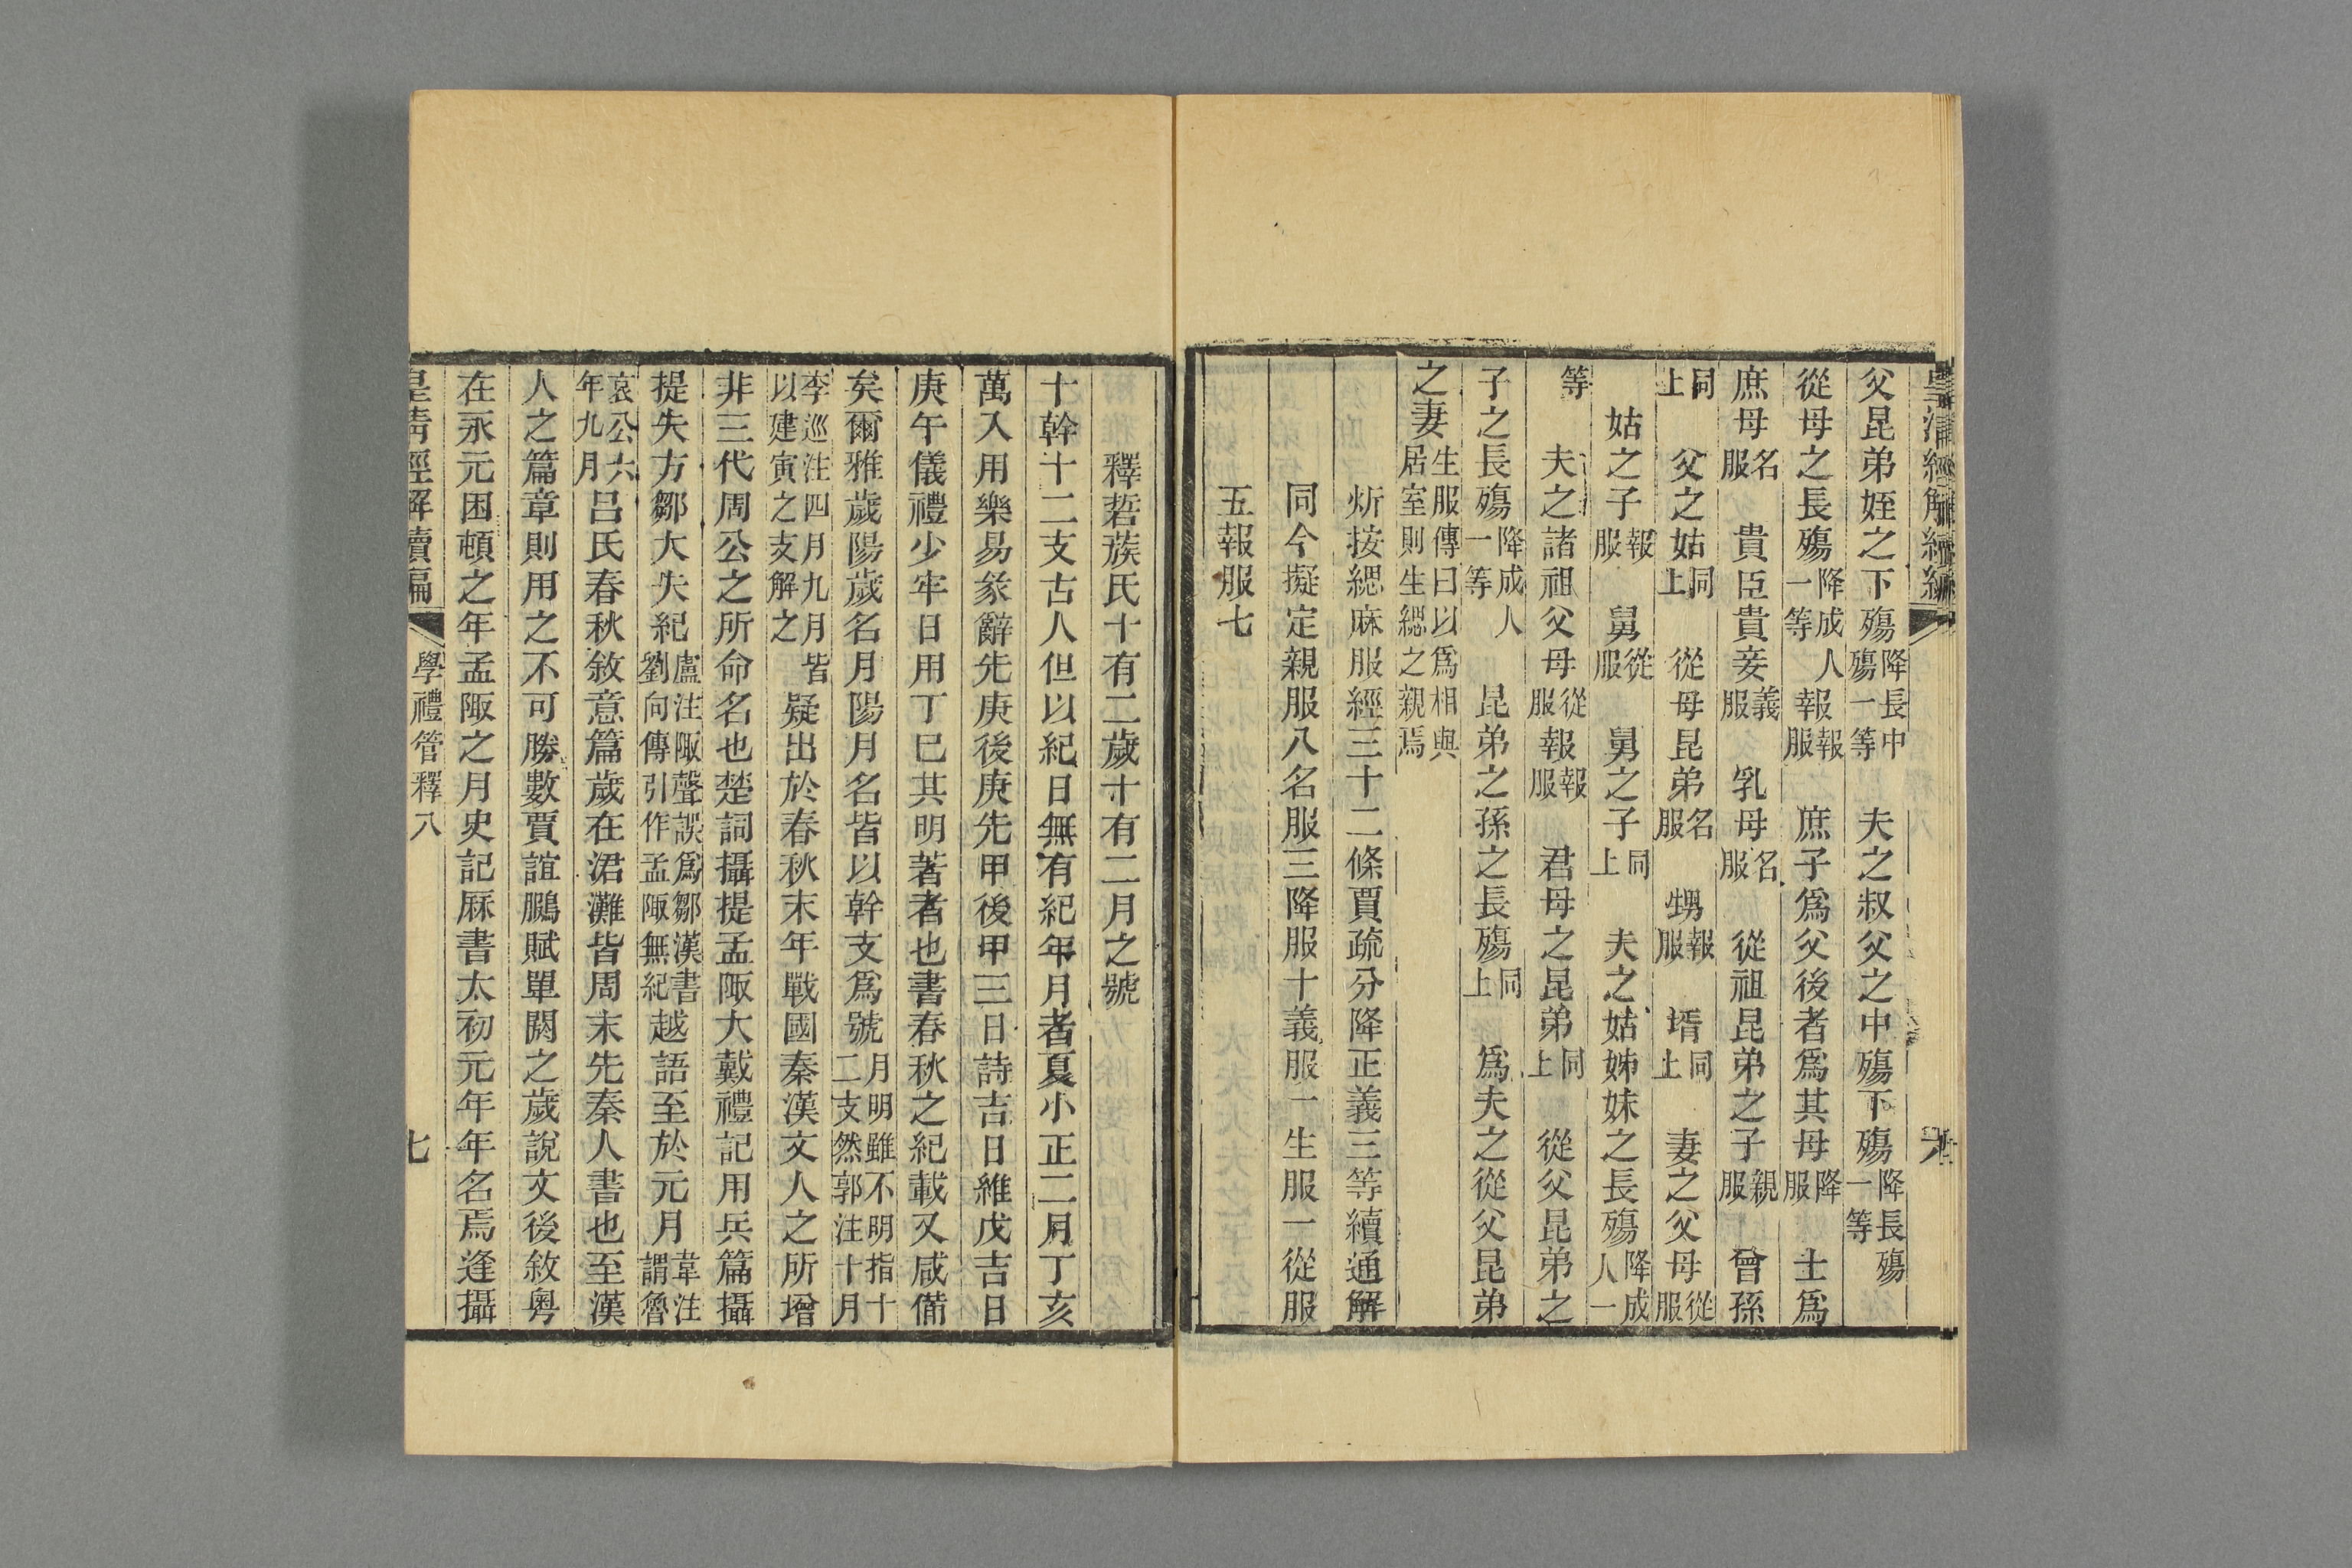 皇清經解續編
父昆弟姪之下殤降長中殤一等　夫之叔父之中殤下殤降長殤一等
從母之長殤降成人一等報報服　庶子爲父後者爲其母降服　士爲
庶母名服　貴臣貴妾義服　乳母名服　從祖昆弟之子親服　曾孫
同上　父之姑同上　從母昆弟名服　甥報服　壻同上　妻之父母從服
姑之子報服　舅從服　舅之子同上　夫之姑姊妹之長殤降成人一
等　夫之諸祖父母從服報報服　君母之昆弟同上　從父昆弟之
子之長殤降成人一等　昆弟之孫之長殤同上　爲夫之從父昆弟
之妻生服傳曰以爲相與居室則生緦之親焉
炘按緦麻服經三十二條賈疏分降正義三等續通解
同今擬定親服八名服三降服十義服一生服一從服
五報服七
釋萻蔟氏十有二歲十有二月之號
十幹十二支古人但以紀日無有紀年月者夏小正二月丁亥
萬入用樂易彖辭先庚後庚先甲後甲三日詩吉日維戊吉日
庚午儀禮少牢日用丁巳其明著者也書春秋之紀載又咸備
矣爾雅歲陽歲名月陽月名皆以幹支爲號月明雖不明指十二支然郭注十月
李巡注四月九月皆以建寅之支解之疑出於春秋末年戰國秦漢文人之所增
非三代周公之所命名也楚詞攝提孟陬大戴禮記用兵篇攝
提失方鄒大失紀盧注陬聲誤爲鄒漢書劉向傳引作孟陬無紀越語至於元月韋注謂魯
哀公六年九月呂氏春秋敘意篇歲在涒灘皆周末先秦人書也至漢
人之篇章則用之不可勝數賈誼鵩賦單閼之歲說文後敘粵
在永元困頓之年孟陬之月史記厤書太初元年年名焉逢攝
皇清經解續編　學禮管釋八　七